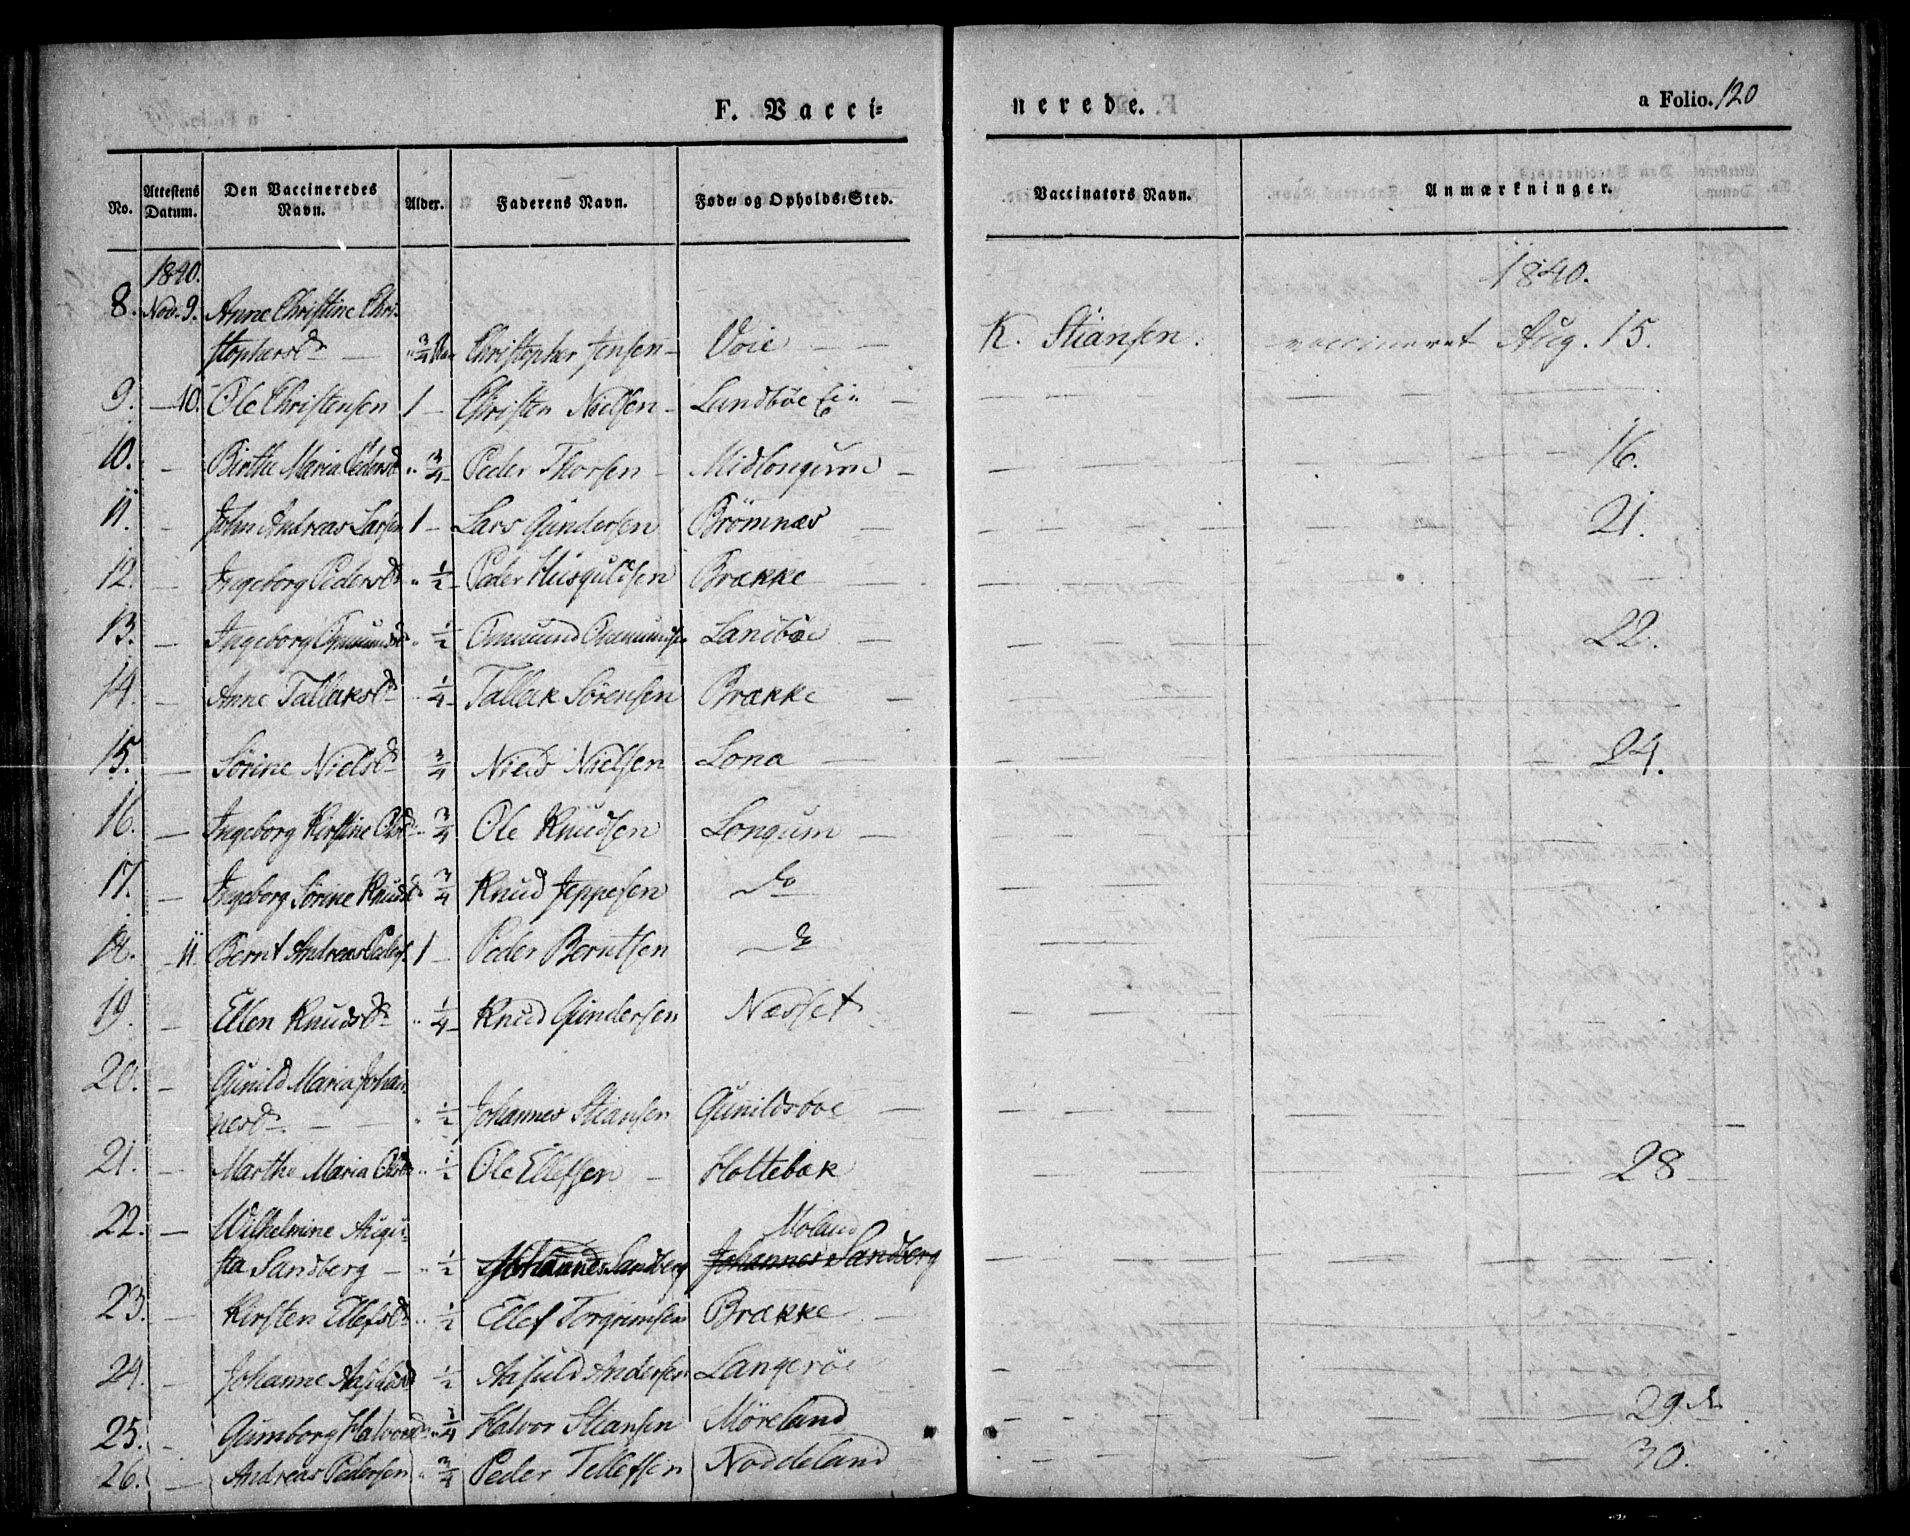 F. Vacci-
nerede.
a Folio. 120
No.
Attestens Datum.
Den Vaccineredes Navn.
Alder.
Faderens Navn.
Føde- og Opholds-Sted.
Vaccinators Navn.
Anmærkninger.
1840.
1840.
8. Nov. 9. Anne Christine Chri-
stophersd. — " ¾ Christopher Jensen — Voie — — K. Stiansen. vaccineret Aug. 15.
9. — 10. Ole Christensen 1 — Christen Nielsen — Landbøe —
10. — Birthe Maria Pedersd. " ¾ Peder Thorsen — Midlongum — 16.
11. — John Andreas Larsen 1 — Lars Gundersen Brömnæs — 21.
12. — Ingeborg Pedersd. " ½ Peder Brække —
13. — Ingeborg " ½ Omund Landbøe — 22.
14. — Anne Tallaksd. " ¼ Tallak Sörensen Brække —
15. — Sörine Nielsd. ¾ Niels Nielsen Lona — 24.
16. — Ingeborg Kirstine Olsd. " ¾ Ole Knudsen Longum —
17. — Ingeborg Sörine Knudsd. ¾ Knud Jeppesen do
18. — 11 Bernt Andreas Peders. 1 — Peder Berntsen do
19. — Ellen Knudsd. " ¼ Knud Gundersen Næsset
20. — Gunild Maria Johan-
nesd. — — " ½ Johannes Stiansen Gunildsboe —
21. — Marthe Maria Olsd. " ½ Ole Ellefsen — Holtebak 28
22. — Wilhelmine Augu- Moland
sta Sandberg — " ½ Johannes Sandberg Johannes Sandberg
23. — Kirsten Ellefsd. " ½ Ellef Torgrimsen Brække —
24. — Johanne ½ Andersen Langeröe
25. — Gumborg Halvorsd. " ¼ Halvor Stiansen Möreland 29
26. — Andreas Pedersen " ¾ Peder Tellefsen Noddeland 30.